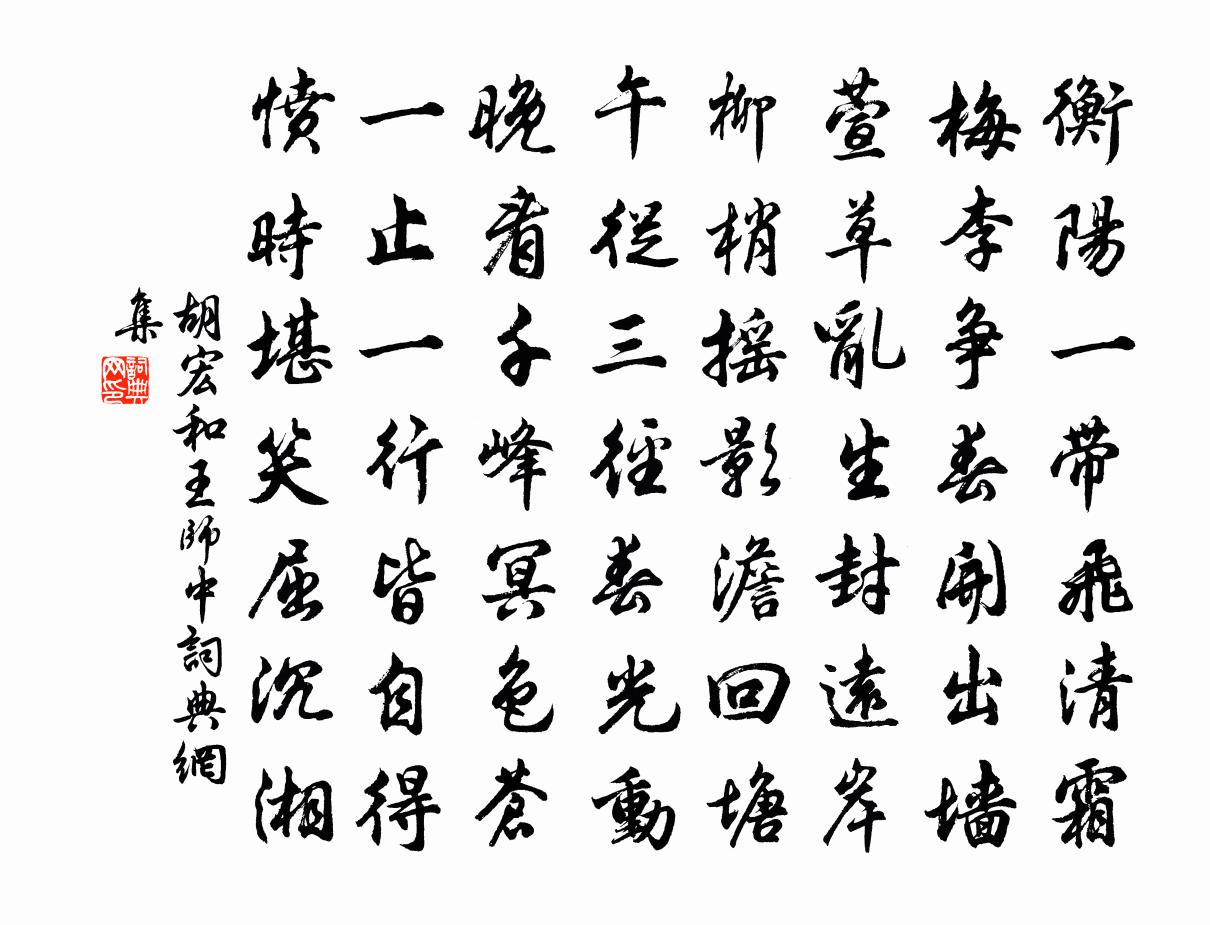 衡陽一帶飛清霜
梅李爭春開出墻
萱草亂生封遠岸
柳梢摇影澹回塘
午從三徑春光動
晚看千峰冥色蒼
一止一行皆自得
憤時堪笑屈沉湘
胡宏和王師中詞典網
集
詞典網印